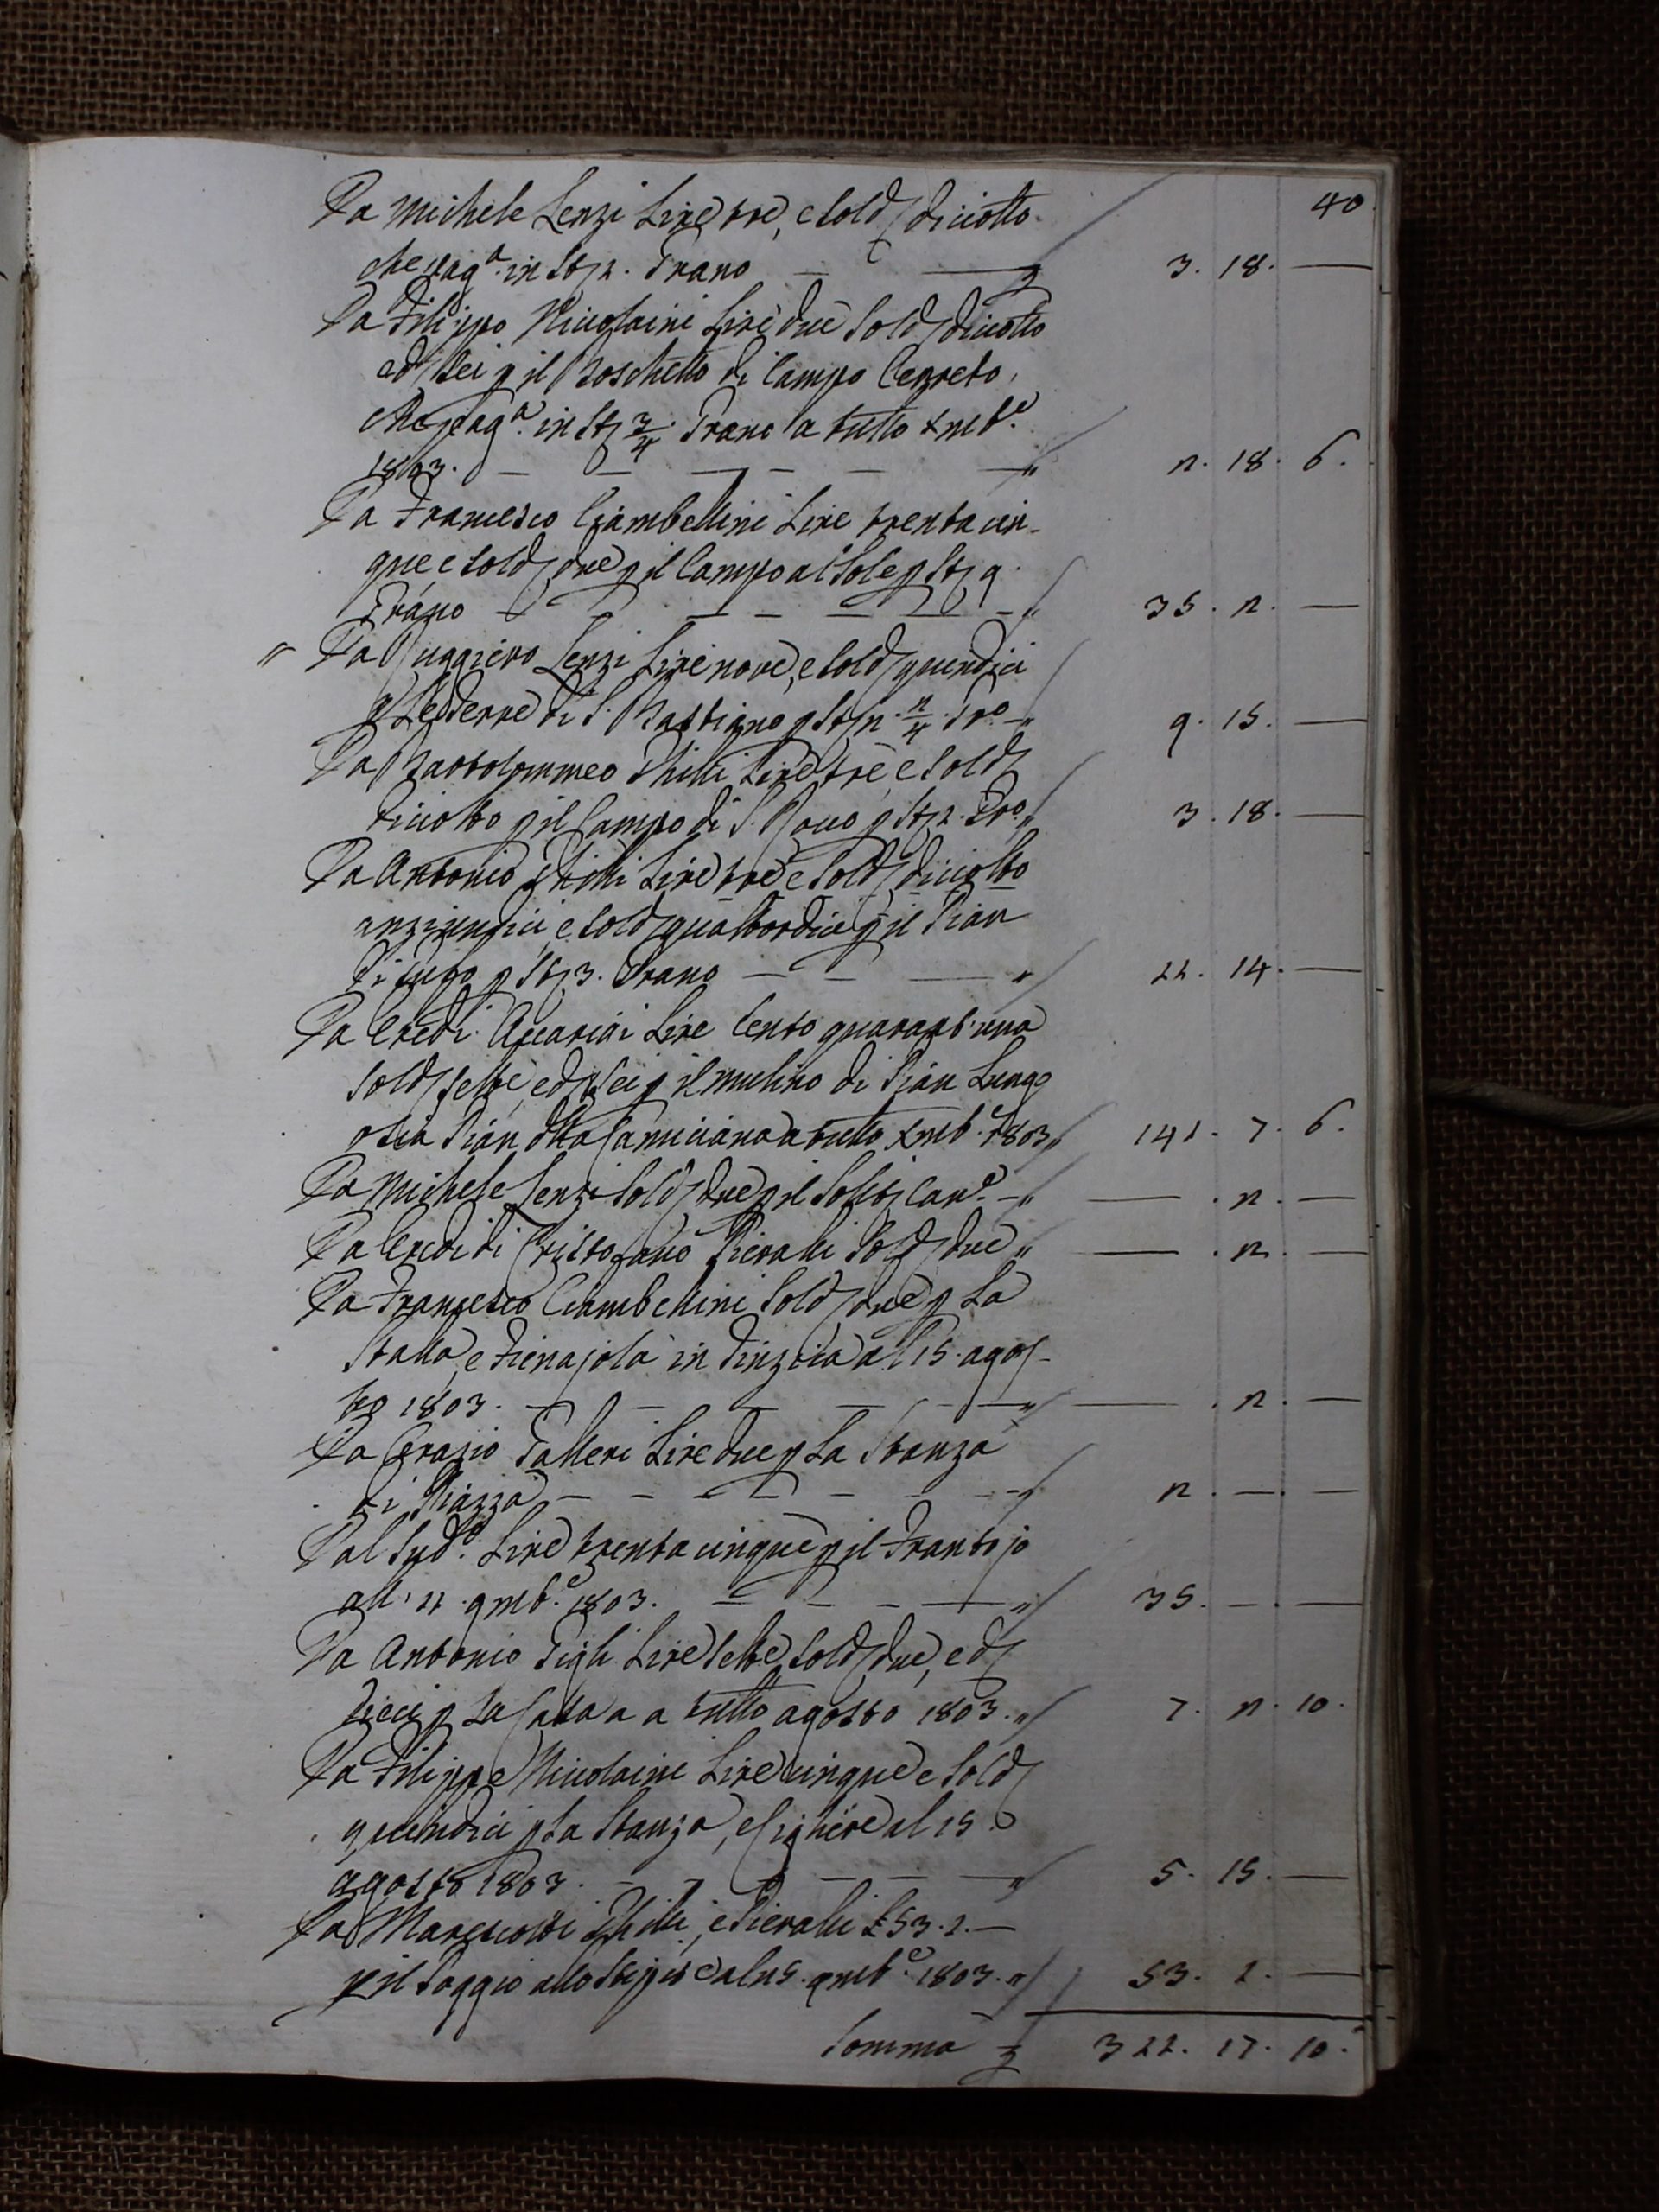 40
Da Michele Lenzi Lire tre, e sold/ diciotto
che pag.a in St/ 1. Grano — 3. 18. —
Da Filippo Nicolaini Lire due sold/ diciotto
ed/ sei p il Boschetto di Campo Cerreto,
che pag.a in St/ 3/4 Grano a tutto Xmb.e
1803. — 2. 18. 6.
Da Francesco Ciambellini Lire trentacin-
que e sold/ due p il Campo al Sole p St/ 9.
Grano — 35. 2. —
" Da Ruggiero Lenzi Lire nove, e sold/ quindici
p Le Terre di S. Bastiano p St/ 2. 2/4. Gr.o — 9. 15. —
Da Bartolommeo Ghilli Lire tre e sold/
diciotto p il Campo di S. Rocco p St/ 1. Gr.o 3. 18. —
Da Antonio Ghilli Lire tre e sold/ diciotto
anzi undici, e sold/ quattordici p il Pian
di p St/ 3. Grano — 11. 14. —
Da Eredi Accariai Lire Cento quarant'una
sold/ sette, ed/ sei p il mulino di Pian Lungo
o sia Pian d.lla Camiciana a tutto Xmb.e 1803 141. 7. 6.
Da Michele Lenzi sold/ due p il solit/ can.e — . 2. —
Da Eredi di Cristofano Pieralli sold/ due — . 2. —
Da Francesco Ciambellini sold/ due p La
Stalla, e Fienajola in al 15. agos-
to 1803. — . 2. —
Da Orazio Galleri Lire due p La Stanza
di Piazza — 2. — . —
Dal Sud.o Lire trentacinque p il Frantojo
all' 11. 9mb.e 1803. — 35. — . —
Da Antonio Gigli Lire sette, sold/ due, ed/
dieci p La Casa a a tutto agosto 1803. 7. 2. 10.
Da Filippo Nicolaini Lire cinque e sold/
quindici p La Stanza, e al 15.
agosto 1803. — 5. 15. —
Da Marescotti Ghilli, e Pieralli £ 53. 1. —
p il Poggio allo al 25. 9mb.e 1803. 53. 1. —
Somma 322. 17. 10.